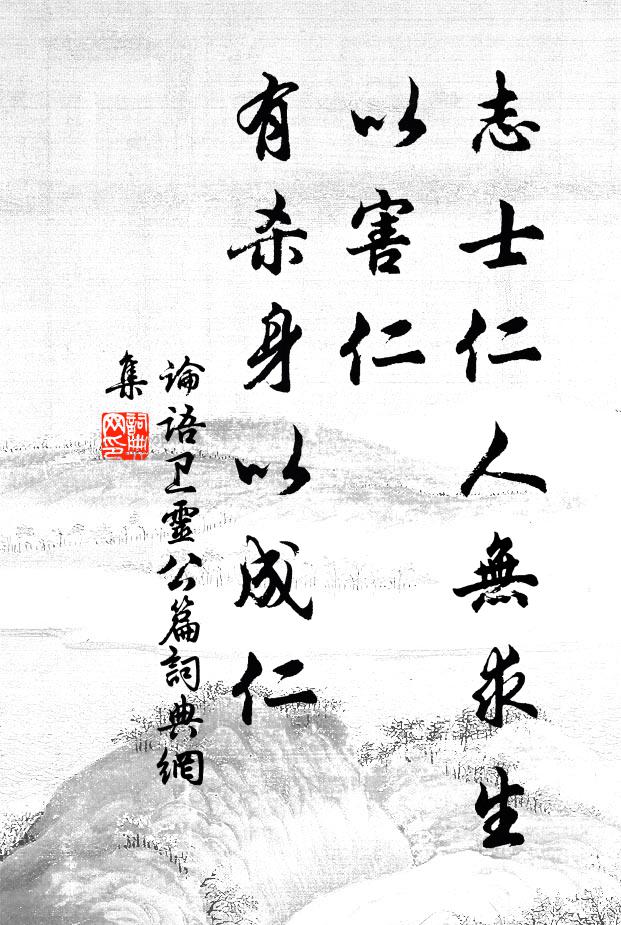 志士仁人無求生
以害仁
有杀身以成仁
論语卫靈公篇詞典網
集
詞典
网印